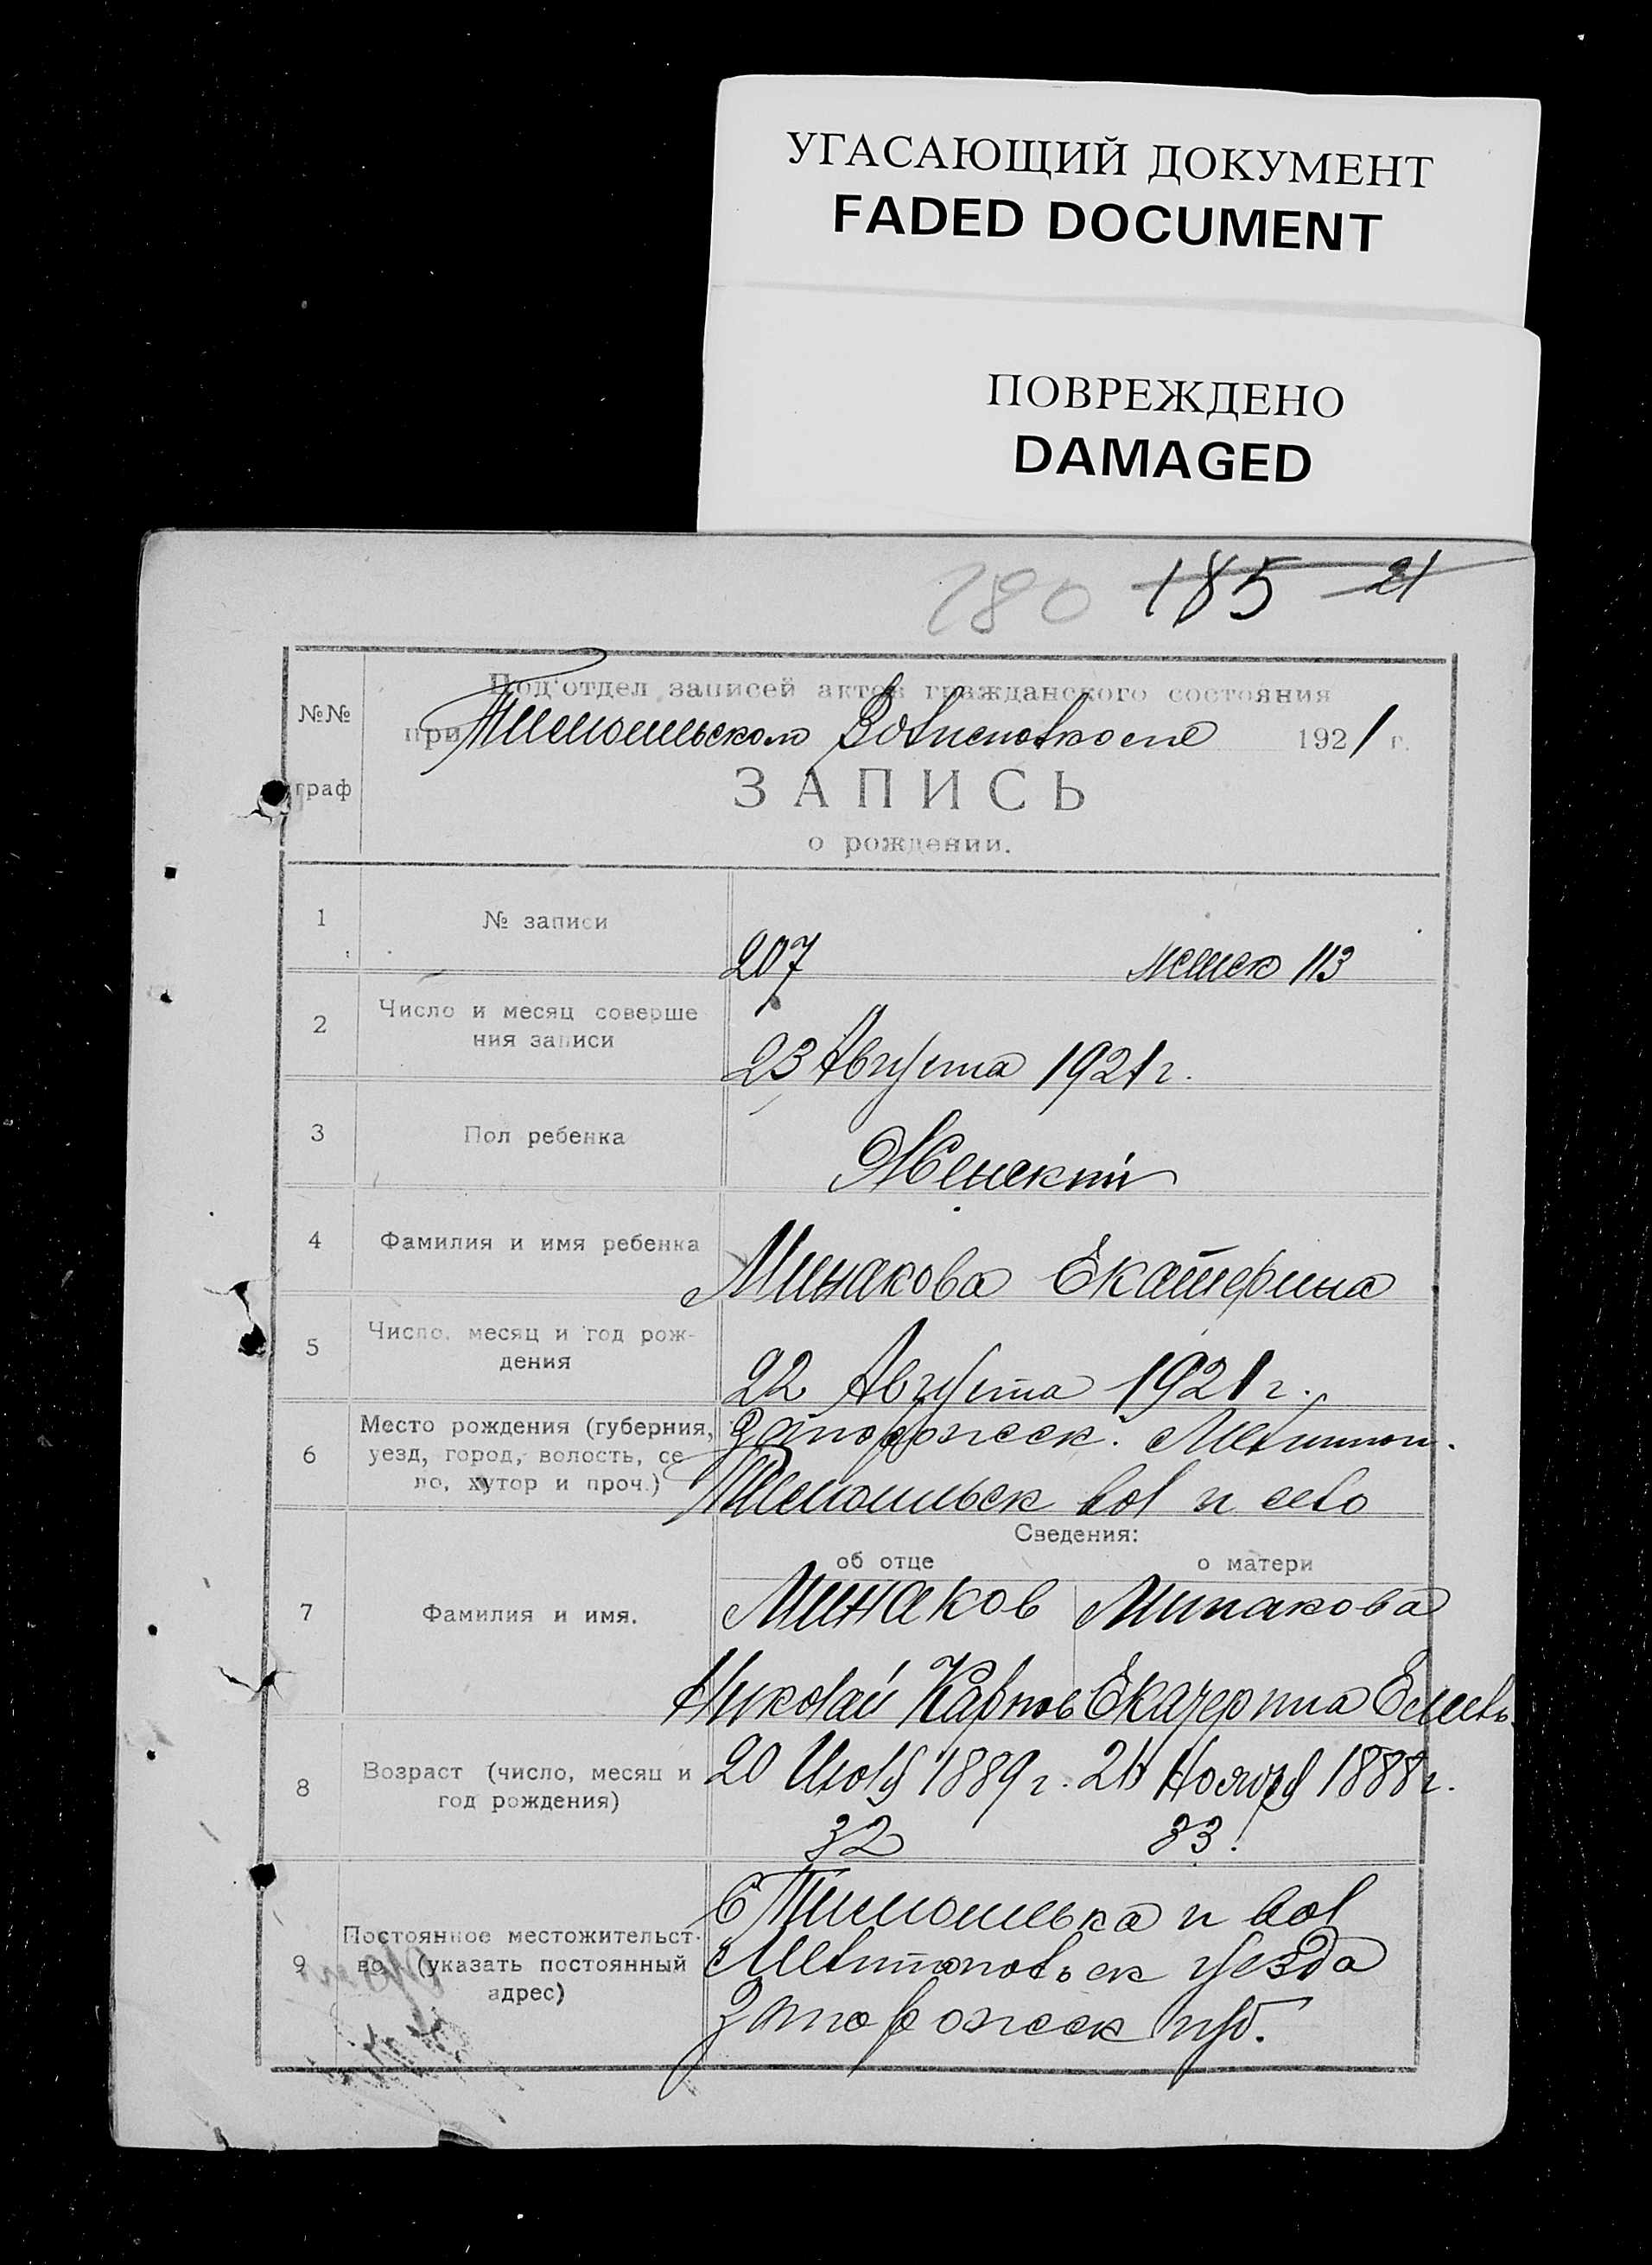 УГАСАЮЩИЙ ДОКУМЕНТ
FADED DOCUMENT
ПОВРЕЖДЕНО
DAMAGED
180 185 21
№№ граф
Под'отдел записей актов гражданского состояния
при Тимошьском Волисполкоме 1921 г.
ЗАПИСЬ
о рождении.
1 № записи 207 женск 113
2 Число и месяц соверше
ния записи 23 Августа 1921 г.
3 Пол ребенка Женский
4 Фамилия и имя ребенка Минакова Екатерина
5 Число, месяц и год рож-
дения 22 Августа 1921 г.
6 Место рождения (губерния,
уезд, город, волость, се
ло, хутор и проч.)
Запорожск. Мелитоп.
вол и село
Сведения:
об отце о матери
7 Фамилия и имя.
Минаков Минакова
Николай Карпов Екатерина
8 Возраст (число, месяц и
год рождения)
20 Июля 1889 г. Ноября 1888 г.
32 33
9 Постоянное местожительст-
во (указать постоянный
адрес)
С Тимошевка и вол
Мелитопольск уезда
Запорожск губ.